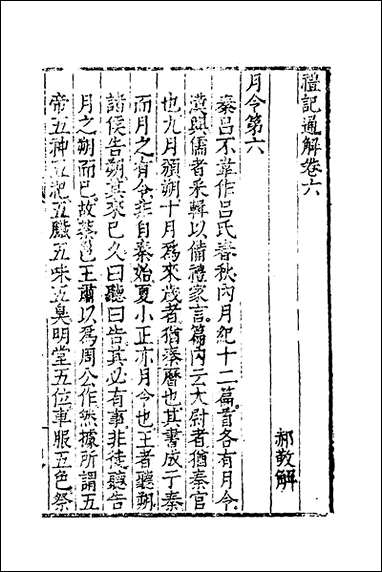 禮記通解卷六
郝敬解
月令第六
秦呂不韋作呂氏春秋內月紀十二篇首各有月令
漢興儒者采輯以備禮家言篇內云大尉者猶秦官
也九月頒朔十月爲來歲者猶秦曆也其書成于秦
而月之有令非自秦始夏小正亦月令也王者聽朔
諸侯告朔其來已久曰聽曰告其必有事非徒聽告
月之朔而已故蔡邕王肅以爲周公作然據所謂五
帝五神五祀五臟五味五臭明堂五位車服五色祭